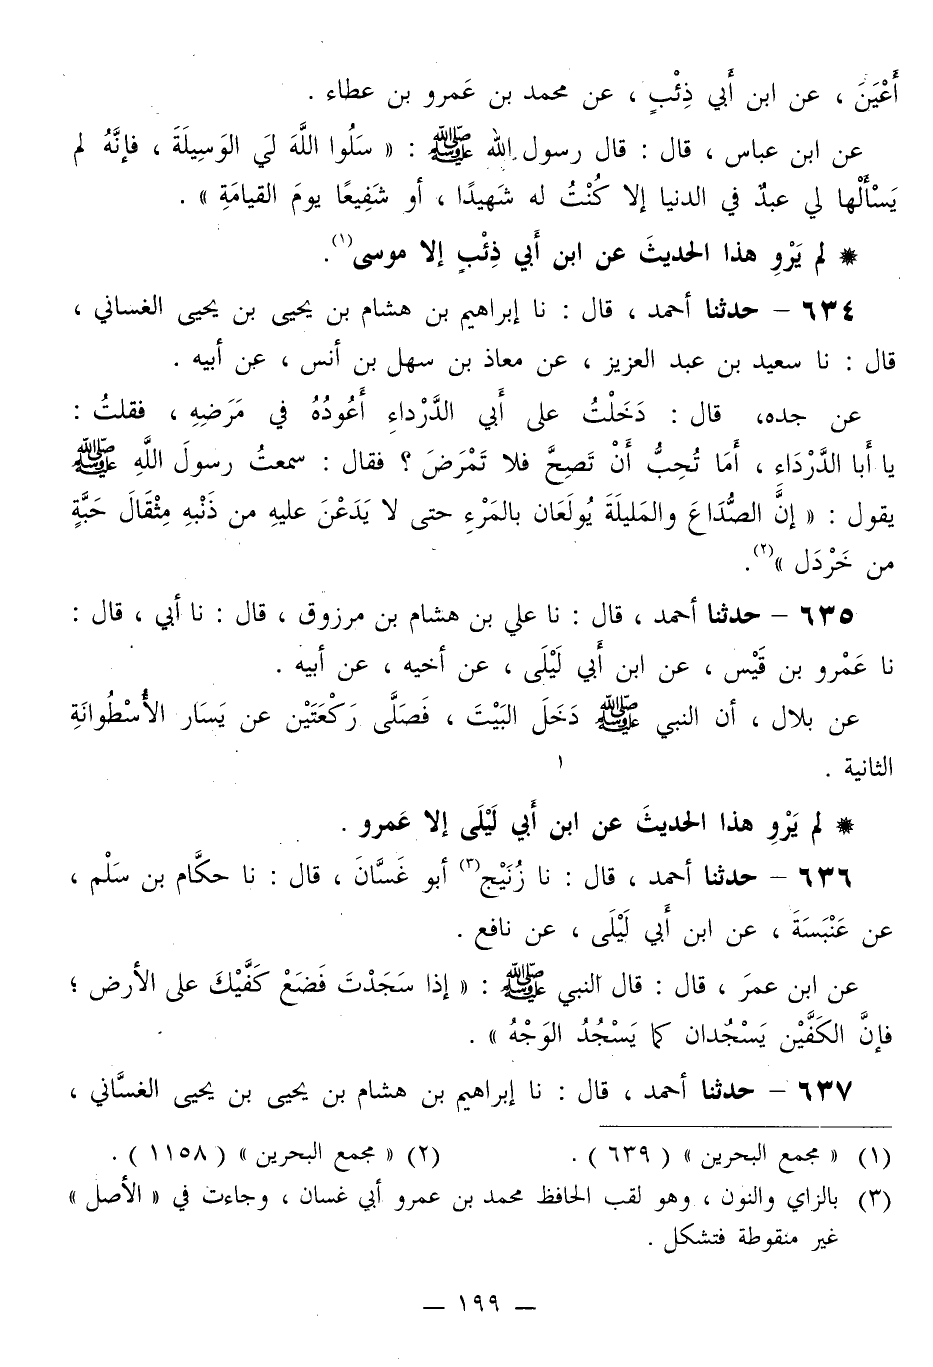 أَعْيَنَ ، عن ابن أَبي ذِئْبٍ ، عن محمد بن عَمرو بن عطاء .
عن ابن عباس ، قال : قال رسول الله ﷺ : « سَلُوا اللَّهَ لَي الوَسِيلَةَ ، فإنَّهُ لم
يَسْأَلْها لي عبدٌ في الدنيا إلا كُنْتُ له شَهيدًا ، أو شَفِيعًا يومَ القيامَةِ » .
* لم يَرْوِ هذا الحديثَ عن ابن أَبي ذِئْبٍ إلا موسى(١).
٦٣٤ - حدثنا أحمد ، قال : نا إبراهيم بن هشام بن يحيى بن يحيى الغساني ،
قال : نا سعيد بن عبد العزيز ، عن معاذ بن سهل بن أنس ، عن أبيه .
عن جده، قال : دَخَلْتُ على أَبي الدَّرْداءِ أَعُودُهُ في مَرَضِهِ ، فقلتُ :
يا أَبا الدَّرْدَاءِ ، أَمَا تُحِبُّ أَنْ تَصِحَّ فلا تَمْرَضَ ؟ فقال : سمعتُ رسولَ اللَّهِ ﷺ
يقول : « إنَّ الصُّدَاعَ والمَليلَةَ يُولَعَان بالمَرْءِ حتى لا يَدَعْنَ عليهِ من ذَنْبِهِ مِثْقَالَ حَبَّةٍ
من خَرْدَل »(٢).
٦٣٥ - حدثنا أحمد ، قال : نا علي بن هشام بن مرزوق ، قال : نا أبي ، قال :
نا عَمْرو بن قَيْس ، عن ابن أَبي لَيْلَى ، عن أخيه ، عن أبيه .
عن بلال ، أن النبي ﷺ دَخَلَ البَيْتَ ، فَصَلَّى رَكْعَتَيْن عن يَسَار الأُسْطُوانَةِ
الثانية .
* لم يَرْوِ هذا الحديثَ عن ابن أَبي لَيْلَى إلا عَمرو .
٦٣٦ - حدثنا أحمد ، قال : نا زُنَيْج(٣) أبو غَسَّانَ ، قال : نا حكَّام بن سَلْم ،
عن عَنْبَسَةَ ، عن ابن أَبي لَيْلَى ، عن نافع .
عن ابن عمرَ ، قال : قال النبي ﷺ : « إذا سَجَدْتَ فَضَعْ كَفَّيْكَ على الأرض ؛
فإنَّ الكَفَّيْن يَسْجُدان كما يَسْجُدُ الوَجْهُ » .
٦٣٧ - حدثنا أحمد ، قال : نا إبراهيم بن هشام بن يحيى بن يحيى الغسَّاني ،
(١) « مجمع البحرين » ( ٦٣٩ ) . (٢) « مجمع البحرين » ( ١١٥٨ ) .
(٣) بالزاي والنون ، وهو لقب الحافظ محمد بن عمرو أبي غسان ، وجاءت في « الأصل »
غير منقوطة فتشكل .
— ١٩٩ —